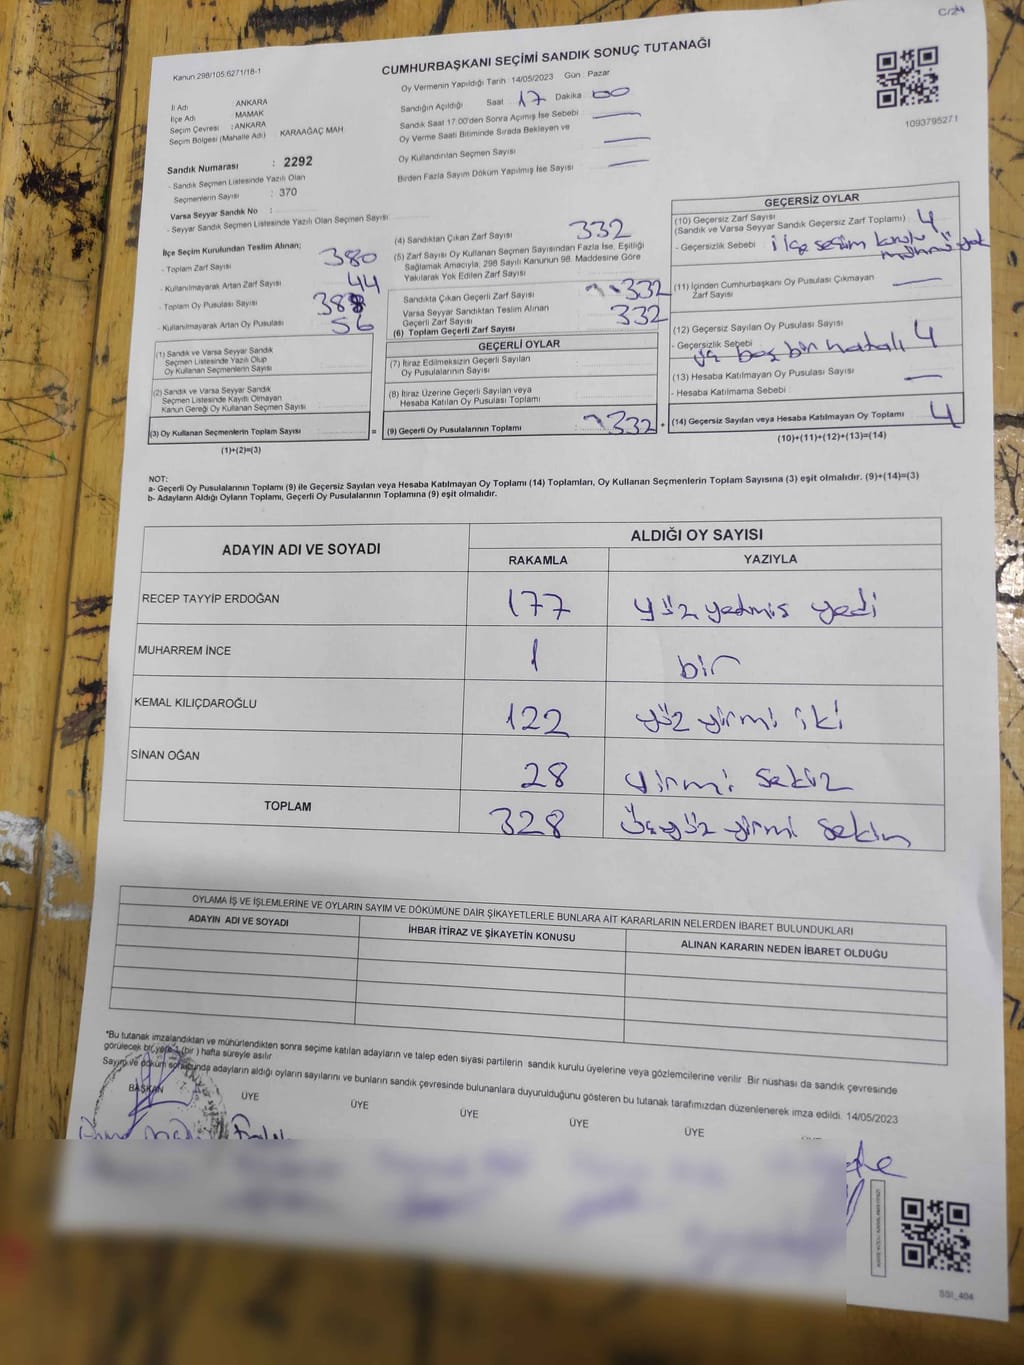 C/24
Kanun 298/105.6271/18-1
CUMHURBAŞKANI SEÇİMİ SANDIK SONUÇ TUTANAĞI
İl Adı : ANKARA
İlçe Adı : MAMAK
Seçim Çevresi : ANKARA
Seçim Bölgesi (Mahalle Adı) : KARAAĞAÇ MAH.
Sandık Numarası : 2292
- Sandık Seçmen Listesinde Yazılı Olan
Seçmenlerin Sayısı : 370
Varsa Seyyar Sandık No :
- Seyyar Sandık Seçmen Listesinde Yazılı Olan Seçmen Sayısı
Oy Vermenin Yapıldığı Tarih : 14/05/2023 Gün : Pazar
Sandığın Açıldığı Saat 17 Dakika 00
Sandık Saat 17:00'den Sonra Açılmış İse Sebebi
Oy Verme Saati Bitiminde Sırada Bekleyen ve
Oy Kullandırılan Seçmen Sayısı
Birden Fazla Sayım Döküm Yapılmış İse Sayısı
1093795271
İlçe Seçim Kurulundan Teslim Alınan;
- Toplam Zarf Sayısı 380
- Kullanılmayarak Artan Zarf Sayısı 44
- Toplam Oy Pusulası Sayısı
- Kullanılmayarak Artan Oy Pusulası 56
(1) Sandık ve Varsa Seyyar Sandık
Seçmen Listesinde Yazılı Olup
Oy Kullanan Seçmenlerin Sayısı
(2) Sandık ve Varsa Seyyar Sandık
Seçmen Listesinde Kayıtlı Olmayan
Kanun Gereği Oy Kullanan Seçmen Sayısı
(3) Oy Kullanan Seçmenlerin Toplam Sayısı =
(1)+(2)=(3)
(4) Sandıktan Çıkan Zarf Sayısı 332
(5) Zarf Sayısı Oy Kullanan Seçmen Sayısından Fazla İse, Eşitliği
Sağlamak Amacıyla, 298 Sayılı Kanunun 98. Maddesine Göre
Yakılarak Yok Edilen Zarf Sayısı
Sandıkta Çıkan Geçerli Zarf Sayısı 332
Varsa Seyyar Sandıktan Teslim Alınan
Geçerli Zarf Sayısı 332
(6) Toplam Geçerli Zarf Sayısı
GEÇERLİ OYLAR
(7) İtiraz Edilmeksizin Geçerli Sayılan
Oy Pusulalarının Sayısı
(8) İtiraz Üzerine Geçerli Sayılan veya
Hesaba Katılan Oy Pusulası Toplamı
(9) Geçerli Oy Pusulalarının Toplamı 332 +
GEÇERSİZ OYLAR
(10) Geçersiz Zarf Sayısı
(Sandık ve Varsa Seyyar Sandık Geçersiz Zarf Toplamı) 4
- Geçersizlik Sebebi ilçe seçim kurulu
mührü yok
(11) İçinden Cumhurbaşkanı Oy Pusulası Çıkmayan
Zarf Sayısı
(12) Geçersiz Sayılan Oy Pusulası Sayısı 4
- Geçersizlik Sebebi
üç boş bir hatalı
(13) Hesaba Katılmayan Oy Pusulası Sayısı
- Hesaba Katılmama Sebebi
(14) Geçersiz Sayılan veya Hesaba Katılmayan Oy Toplamı 4
(10)+(11)+(12)+(13)=(14)
NOT:
a- Geçerli Oy Pusulalarının Toplamı (9) ile Geçersiz Sayılan veya Hesaba Katılmayan Oy Toplamı (14) Toplamları, Oy Kullanan Seçmenlerin Toplam Sayısına (3) eşit olmalıdır. (9)+(14)=(3)
b- Adayların Aldığı Oyların Toplamı, Geçerli Oy Pusulalarının Toplamına (9) eşit olmalıdır.
ADAYIN ADI VE SOYADI
ALDIĞI OY SAYISI
RAKAMLA YAZIYLA
RECEP TAYYİP ERDOĞAN 177 yüz yetmiş yedi
MUHARREM İNCE 1 bir
KEMAL KILIÇDAROĞLU 122 yüz yirmi iki
SİNAN OĞAN 28 yirmi sekiz
TOPLAM 328 üçyüz yirmi sekiz
OYLAMA İŞ VE İŞLEMLERİNE VE OYLARIN SAYIM VE DÖKÜMÜNE DAİR ŞİKAYETLERLE BUNLARA AİT KARARLARIN NELERDEN İBARET BULUNDUKLARI
ADAYIN ADI VE SOYADI İHBAR İTİRAZ VE ŞİKAYETİN KONUSU ALINAN KARARIN NEDEN İBARET OLDUĞU
*Bu tutanak imzalandıktan ve mühürlendikten sonra seçime katılan adayların ve talep eden siyasi partilerin sandık kurulu üyelerine veya gözlemcilerine verilir. Bir nüshası da sandık çevresinde
görülecek bir yere 1 (bir) hafta süreyle asılır.
Sayım ve döküm sonucunda adayların aldığı oyların sayılarını ve bunların sandık çevresinde bulunanlara duyurulduğunu gösteren bu tutanak tarafımızdan düzenlenerek imza edildi. 14/05/2023
BAŞKAN ÜYE ÜYE ÜYE ÜYE ÜYE
SSI_404